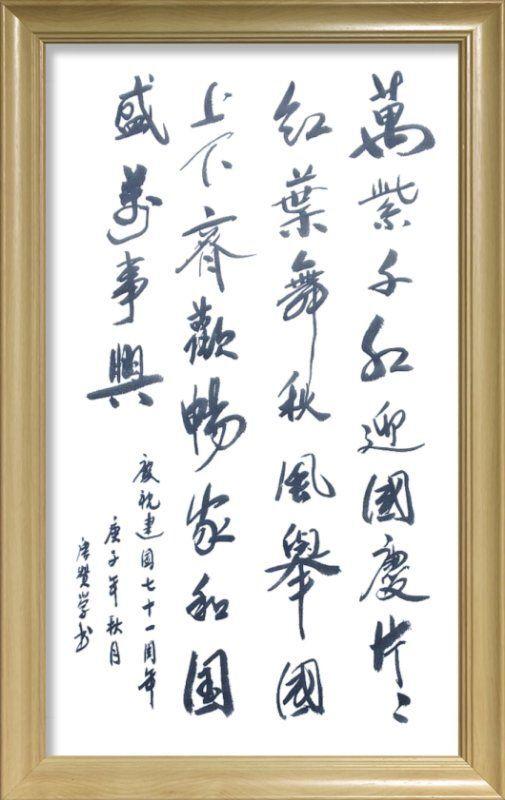 萬紫千红迎國慶片〻
红葉舞秋风舉國
上下齊歡暢家和国
盛萬事興
慶祝建国七十一周年
庚子年秋月
唐贊学书